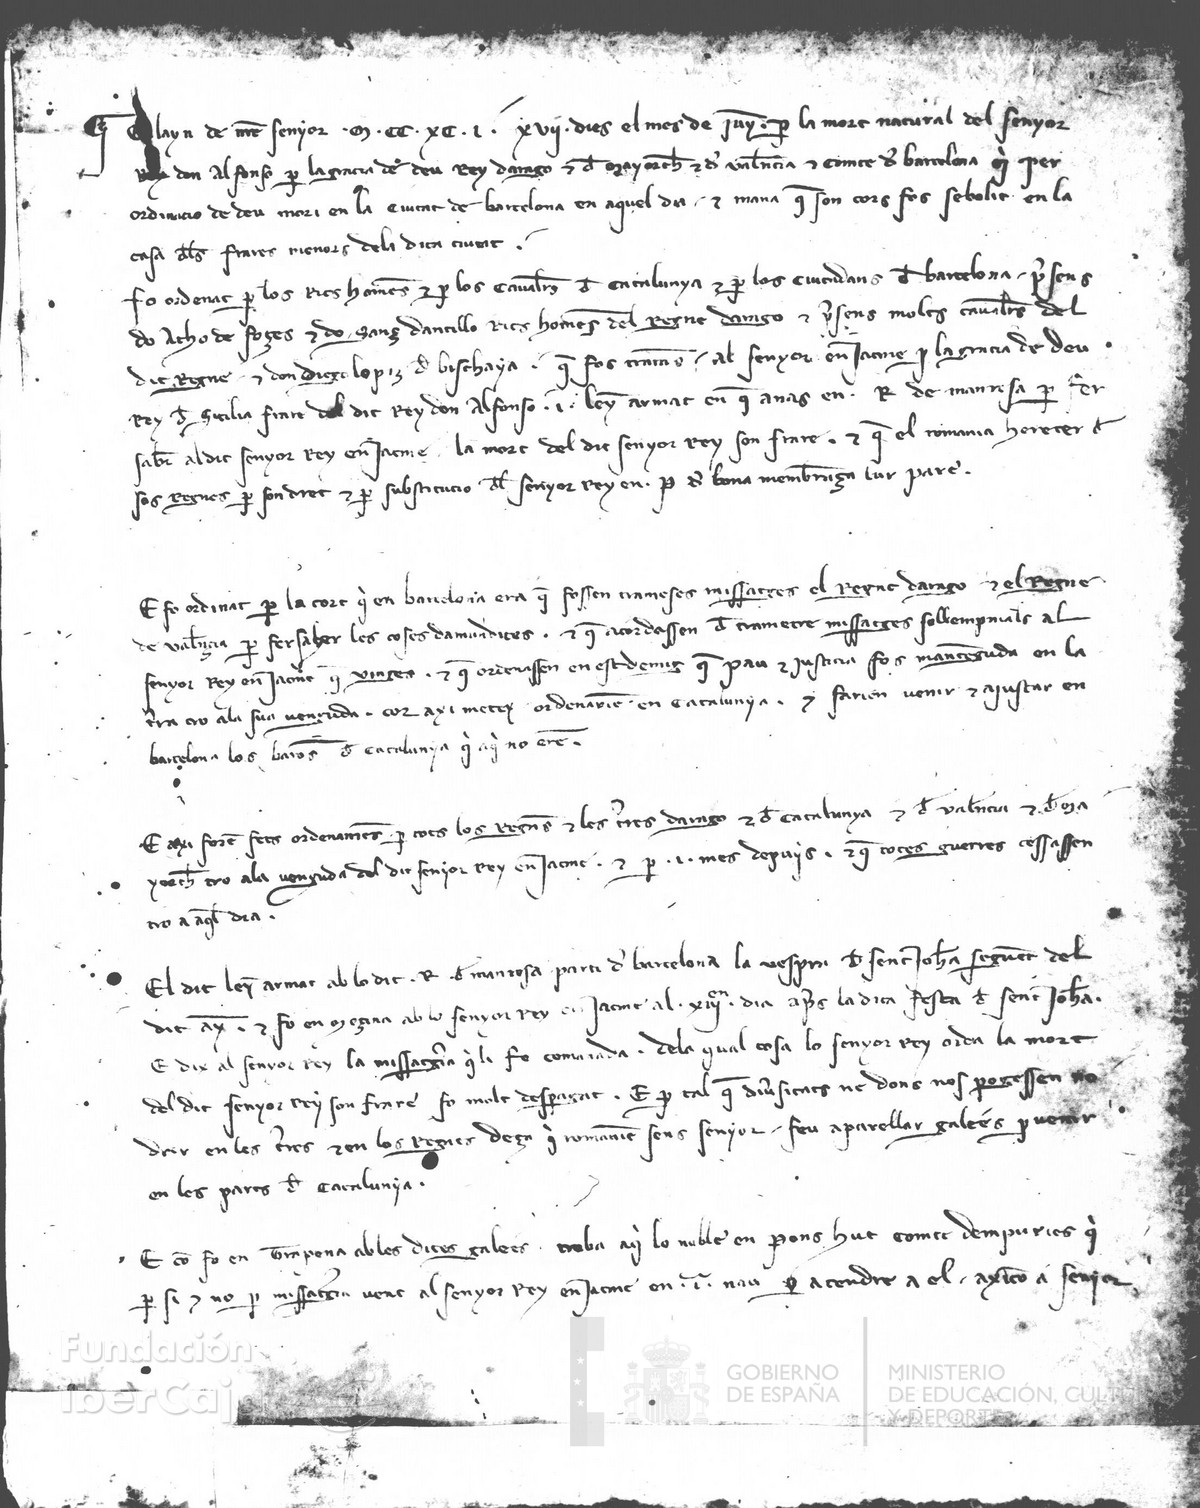 En layn de nr̄e senyor .M.CC.XC.I. XVII. dies el mes de juny. p̱ la mort natural del senyor
Rey don Alfonso p̱ la gracia de deu Rey darago ⁊ đ Mayorch̄ ⁊ đ valencia ⁊ comte đ barcelona q̇ per
ordinacio de deu mori en la Ciutat de barcelona en aquel dia ⁊ mana q̄ son cors fos sebolit en la
casa dl̄s frares menors dela dita ciutat.
Fo ordenat p̱ los Richs homēs ⁊ p̱ los Cauall̄rs đ Catalunya ⁊ p̱ los Ciutadans đ barcelona p̄sens
do Atho de foçes ⁊ do Sanz dantillo Richs homēs del Regne darago ⁊ p̄sens molts cauall̄rs del
dit Regne ⁊ don Diego lopiz đ bischaya. q̄ fos trames al senyor en Jacme p̱ la gracia de deu
Rey đ Sicilia frare del dit Rey don Alfonso .I. leny armat en q̄ anas en. R. de manresa p̱ fer
saber al dit senyor Rey en Jacme la mort del dit senyor Rey son frare. ⁊ q̄ el romania hereter đ
sos Regnes p̱ son dret ⁊ p̱ substitucio dl̄ senyor Rey en. P. đ bona membrança lur pare.
E fo ordinat p̱ la cort q̇ en barcelona era q̄ fossen trameses missatges el Regne darago ⁊ el Regne
de valencia p̱ fer saber les coses damundites. ⁊ q̄ acordassen đ trametre missatges sollempnials al
senyor Rey en Jacme q̄ vinges. ⁊ q̄ ordenassen en est demig q̄ pau ⁊ justicia fos mantenguda en la
t̄rra tro a la sua venguda. cor axi metex ordenarien en Catalunya. ⁊ farien venir ⁊ ajustar en
barcelona los barōs đ Catalunya q̇ aq̇ no erē.
E axi forē fets ordenamēs p̱ tots los Regnēs ⁊ les t̄res darago ⁊ đ Catalunya ⁊ đ valencia ⁊ đ Ma
yorch̄ tro a la venguda del dit senyor Rey en Jacme. ⁊ p̱ .I. mes depuys. ⁊ q̄ totes guerres cessassen
tro a aql̄ dia.
El dit leny armat ab lo dit. R. đ manresa parti đ barcelona la vespra đ sent Joh̄a seguent del
dit ay. ⁊ fo en Mecina ab lo senyor Rey en Jacme al .XIIII. dia ap̄s la dita festa đ sent Joh̄a.
E dix al senyor Rey la missatgeria q̇ li fo comanada. dela qual cosa lo senyor Rey oida la mort
del dit senyor Rey son frare fo molt despagat. E p̱ tal q̄ diūsitats ne dons nos pogessen no
drir en les t̄res ⁊ en los Regnes deça q̇ romanien sens senyor feu aparellar galees p̱ venir
en les parts đ Catalunya.
E cō fo en Trapena ab les dites galees troba aq̇ lo noble en Pons huc comte dempuries q̇
p̱ si ⁊ no p̱ missatgeria venc al senyor Rey en Jacme en .I. nau p̱ atendre a el axi cō a senyor
Fundación
iberCaja
GOBIERNO
DE ESPAÑA
MINISTERIO
DE EDUCACIÓN, CULTURA
Y DEPORTE